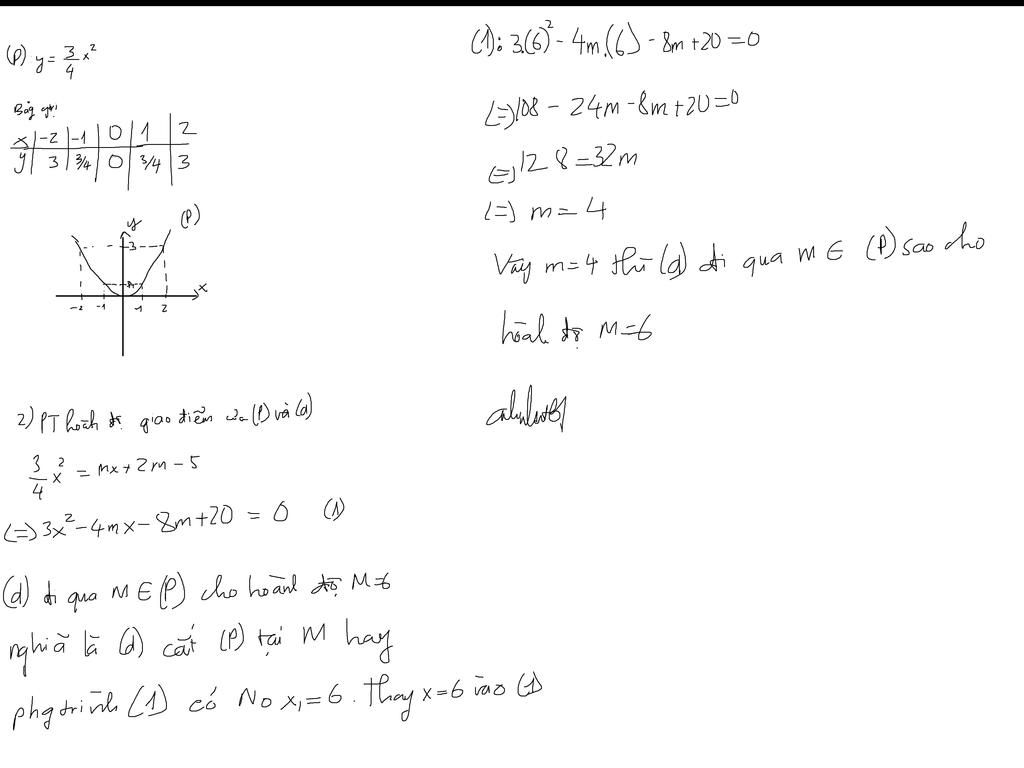 (P) y = 3/4 x²
Bảng gtrị
x | -2 | -1 | 0 | 1 | 2
y | 3 | 3/4 | 0 | 3/4 | 3
y (P)
3
x
-2 -1 1 2
2) PT hoành độ giao điểm của (P) và (d)
3/4 x² = mx + 2m - 5
(=) 3x² - 4mx - 8m + 20 = 0 (1)
(d) đi qua M ∈ (P) cho hoành độ M = 6
nghiã là (d) cắt (P) tại M hay
phg trình (1) có No x₁ = 6. Thay x = 6 vào (1)
(1): 3.(6)² - 4m.(6) - 8m + 20 = 0
(=) 108 - 24m - 8m + 20 = 0
(=) 128 = 32m
(=) m = 4
Vậy m = 4 thì (d) đi qua M ∈ (P) sao cho
hoành độ M = 6